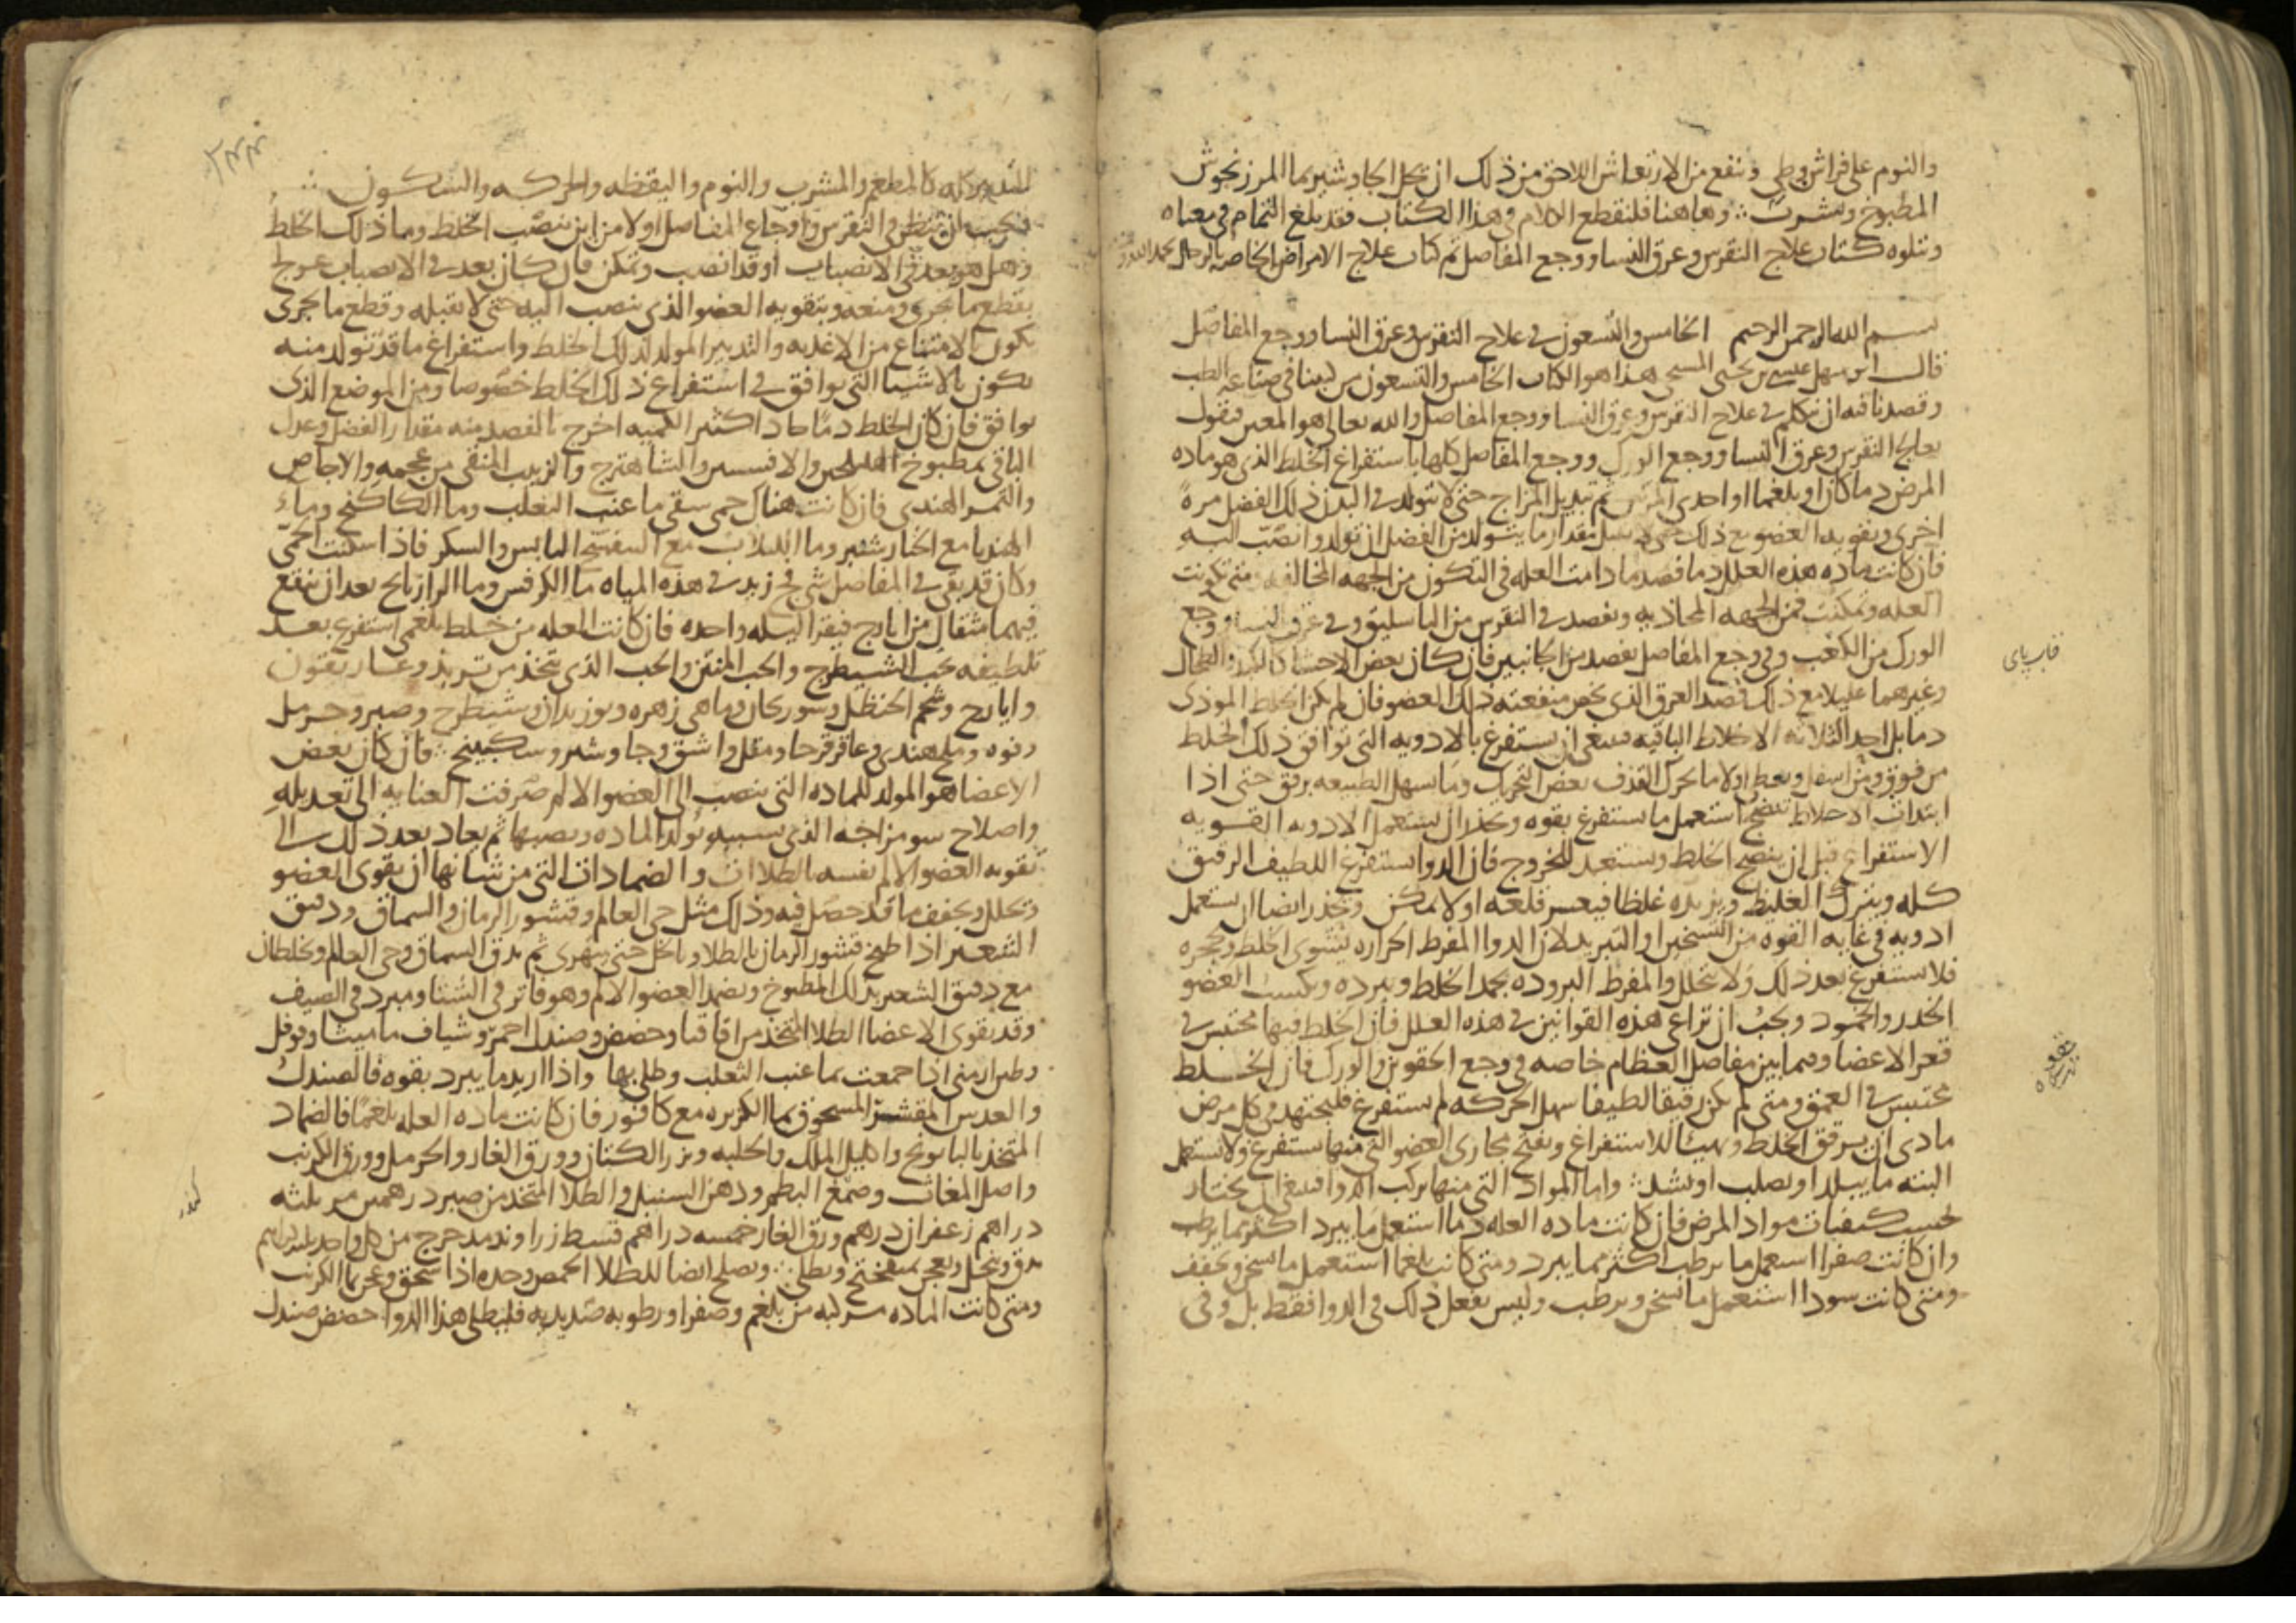 والنوم على فراش وطي وينفع من الارتعاش اللاحق من ذلك ان يحل الجاوشير بما المرزنجوش
المطبوخ ويشرب وهاهنا فلنقطع الكلام في هذا الكتاب فقد بلغ التمام في معناه
ويتلوه كتاب علاج النقرس وعرق النسا ووجع المفاصل ثم كتاب علاج الامراض الخاصه بالرجال
بسم الله الرحمن الرحيم الخامس والتسعون في علاج النقرس وعرق النسا ووجع المفاصل
قال ابو سهل عيسى بن يحيى المسيحي هذا هو الكتاب الخامس والتسعون من كتبنا في صناعه الطب
وقصدنا فيه ان نتكلم في علاج النقرس وعرق النسا ووجع المفاصل والله تعالى هو المعين فنقول
يعالج النقرس وعرق النسا ووجع الورك ووجع المفاصل كلها باستفراغ الخلط الذي هو ماده
المرض دما كان او بلغما او احدى المرتين ثم تبديل المزاج حتى لا يتولد في البدن ذلك الفضل مرة
اخرى وتقويه العضو مع ذلك حتى لا يقبل مقدار ما يتولد من الفضل ان تولد وانصب اليه
فان كانت ماده هذه العلل دما فصد ما دامت العله في التكون من الجهه المخالفه ومتى تكونت
العله وتمكنت فمن الجهه المحاذيه ويفصد في النقرس من الباسليق وفي عرق النسا ووجع
الورك من الكعب وفي وجع المفاصل يفصد من الجانبين فان كان بعض الاحشا كالكبد والطحال
وغيرهما عليلا مع ذلك فصد العرق الذي يخص منفعته ذلك العضو فان لم يكن الخلط الموذي
دما بل احد الثلاثه الاخلاط الباقيه فينبغي ان يستفرغ بالادويه التي توافق ذلك الخلط
من فوق ومن اسفل ويعطى اولا ما يحرك القذف بعض التحريك وما يسهل الطبيعه برفق حتى اذا
ابتدات الاخلاط تنضج استعمل ما يستفرغ بقوه ويحذر ان يستعمل الادويه القويه
الاستفراغ قبل ان ينضج الخلط ويستعد للخروج فان الدوا يستفرغ اللطيف الرقيق
كله ويترك الغليظ ويزيده غلظا فيعسر قلعه اولا يمكن ويحذر ايضا ان يستعمل
ادويه في غايه القوه من التسخين او التبريد لان الدوا المفرط الحراره يشوي الخلط ويحجره
فلا يستفرغ بعد ذلك ولا يتحلل والمفرط البروده يجمد الخلط ويبرده ويكسب العضو
الخدر والجمود ويجب ان تراعى هذه القوانين في هذه العلل فان الخلط فيها محتبس في
قعر الاعضا وفيما بين مفاصل العظام خاصه في وجع الحقوين والورك فان الخلط
محتبس في العمق ومتى لم يكن رقيقا لطيفا سهل الحركه لم يستفرغ فليجتهد في كل مرض
مادي ان يرقق الخلط ويهيئا للاستفراغ ويفتح مجاري العضو التي منها يستفرغ ولا يستعمل
البته ما يبلد او يصلب او يشد واما المواد التي منها يركب الدوا فينبغي ان يختار
بحسب كيفيات مواد المرض فان كانت ماده العله دما استعمل ما يبرد اكثر مما يرطب
وان كانت صفرا استعمل ما يرطب اكثر مما يبرد ومتى كانت بلغما استعمل ما يسخن ويجفف
ومتى كانت سودا استعمل ما يسخن ويرطب وليس يفعل ذلك في الدوا فقط بل وفي
قاب پاي
التدبير كله كالمطعم والمشرب والنوم واليقظه والحركه والسكون
فيجب ان ينظر في النقرس واوجاع المفاصل اولا من اين ينصب الخلط وما ذلك الخلط
وهل هو بعد في الانصباب او قد انصب وتمكن فان كان بعد في الانصباب عولج
بقطع ما يجري ومنعه وبتقويه العضو الذي ينصب اليه حتى لا يقبله وقطع ما يجري
يكون بالامتناع من الاغذيه والتدبير المولد لذلك الخلط واستفراغ ما قد تولد منه
يكون بالاشيا التي توافق في استفراغ ذلك الخلط خصوصا ومن الموضع الذي
يوافق فان كان الخلط دما حادا كثير الكميه اخرج بالفصد منه مقدار الفضل وعدل
الباقي بمطبوخ الهليلجين والافسنتين والشاهترج والزبيب المنقى من عجمه والاجاص
والتمر الهندي فان كانت هناك حمى سقي ما عنب الثعلب وما الكاكنج وما
الهندبا مع الخيارشنبر وما اللبلاب مع البنفسج اليابس والسكر فاذا سكنت الحمى
وكان قد بقي في المفاصل شي فج زيد في هذه المياه ما الكرفس وما الرازيانج بعد ان ينقع
فيهما مثقال من ايارج فيقرا ليله واحده فان كانت العله من خلط بلغمي استفرغ بعد
تلطيفه بحب الشيطرج والحب المنتن والحب الذي يتخذ من تربد وغاريقون
وايارج وشحم الحنظل وسورنجان وماهي زهره وبوزيدان وشيطرج وصبر وحرمل
وفوه وملح هندي وعاقرقرحا ومقل واشق وجاوشير وسكبينج فان كان بعض
الاعضا هو المولد للماده التي تنصب الى العضو الالم صرفت العنايه الى تعديله
واصلاح سو مزاجه الذي بسببه تولد الماده ويصبها ثم يعاد بعد ذلك الى
تقويه العضو الالم نفسه بالطلاات والضمادات التي من شانها ان تقوي العضو
وتحلل وتجفف ما قد حصل فيه وذلك مثل حي العالم وقشور الرمان والسماق ودقيق
الشعير اذا طبخ قشور الرمان بالطلا وبالخل حتى يتهرى ثم يدق السماق وحي العالم ويخلطان
مع دقيق الشعير بذلك المطبوخ ويضمد العضو الالم وهو فاتر في الشتا ومبرد في الصيف
وقد يقوي الاعضا الطلا المتخذ من اقاقيا وحضض وصندل احمر وشياف ماميثا وفوفل
وطين ارمني اذا جمعت بما عنب الثعلب وطلي بها واذا اريد ما يبرد بقوه فالصندل
والعدس المقشر المسحوق بما الكزبره مع كافور فان كانت ماده العله بلغما فالضماد
المتخذ بالبابونج واكليل الملك والحلبه وبزر الكتان وورق الغار والحرمل وورق الكرنب
واصل المغاث وصمغ البطم ودهن السنبل والطلا المتخذ من صبر درهمين مر ثلثه
دراهم زعفران درهم ورق الغار خمسه دراهم قسط زراوند مدحرج من كل واحد ثلثه دراهم
يدق وينخل ويعجن بميفختج ويطلى ويصلح ايضا للطلا الحمص وحده اذا سحق وعجن بما الكرنب
ومتى كانت الماده مركبه من بلغم وصفرا ورطوبه صديديه فليطلى هذا الدوا حضض صندل